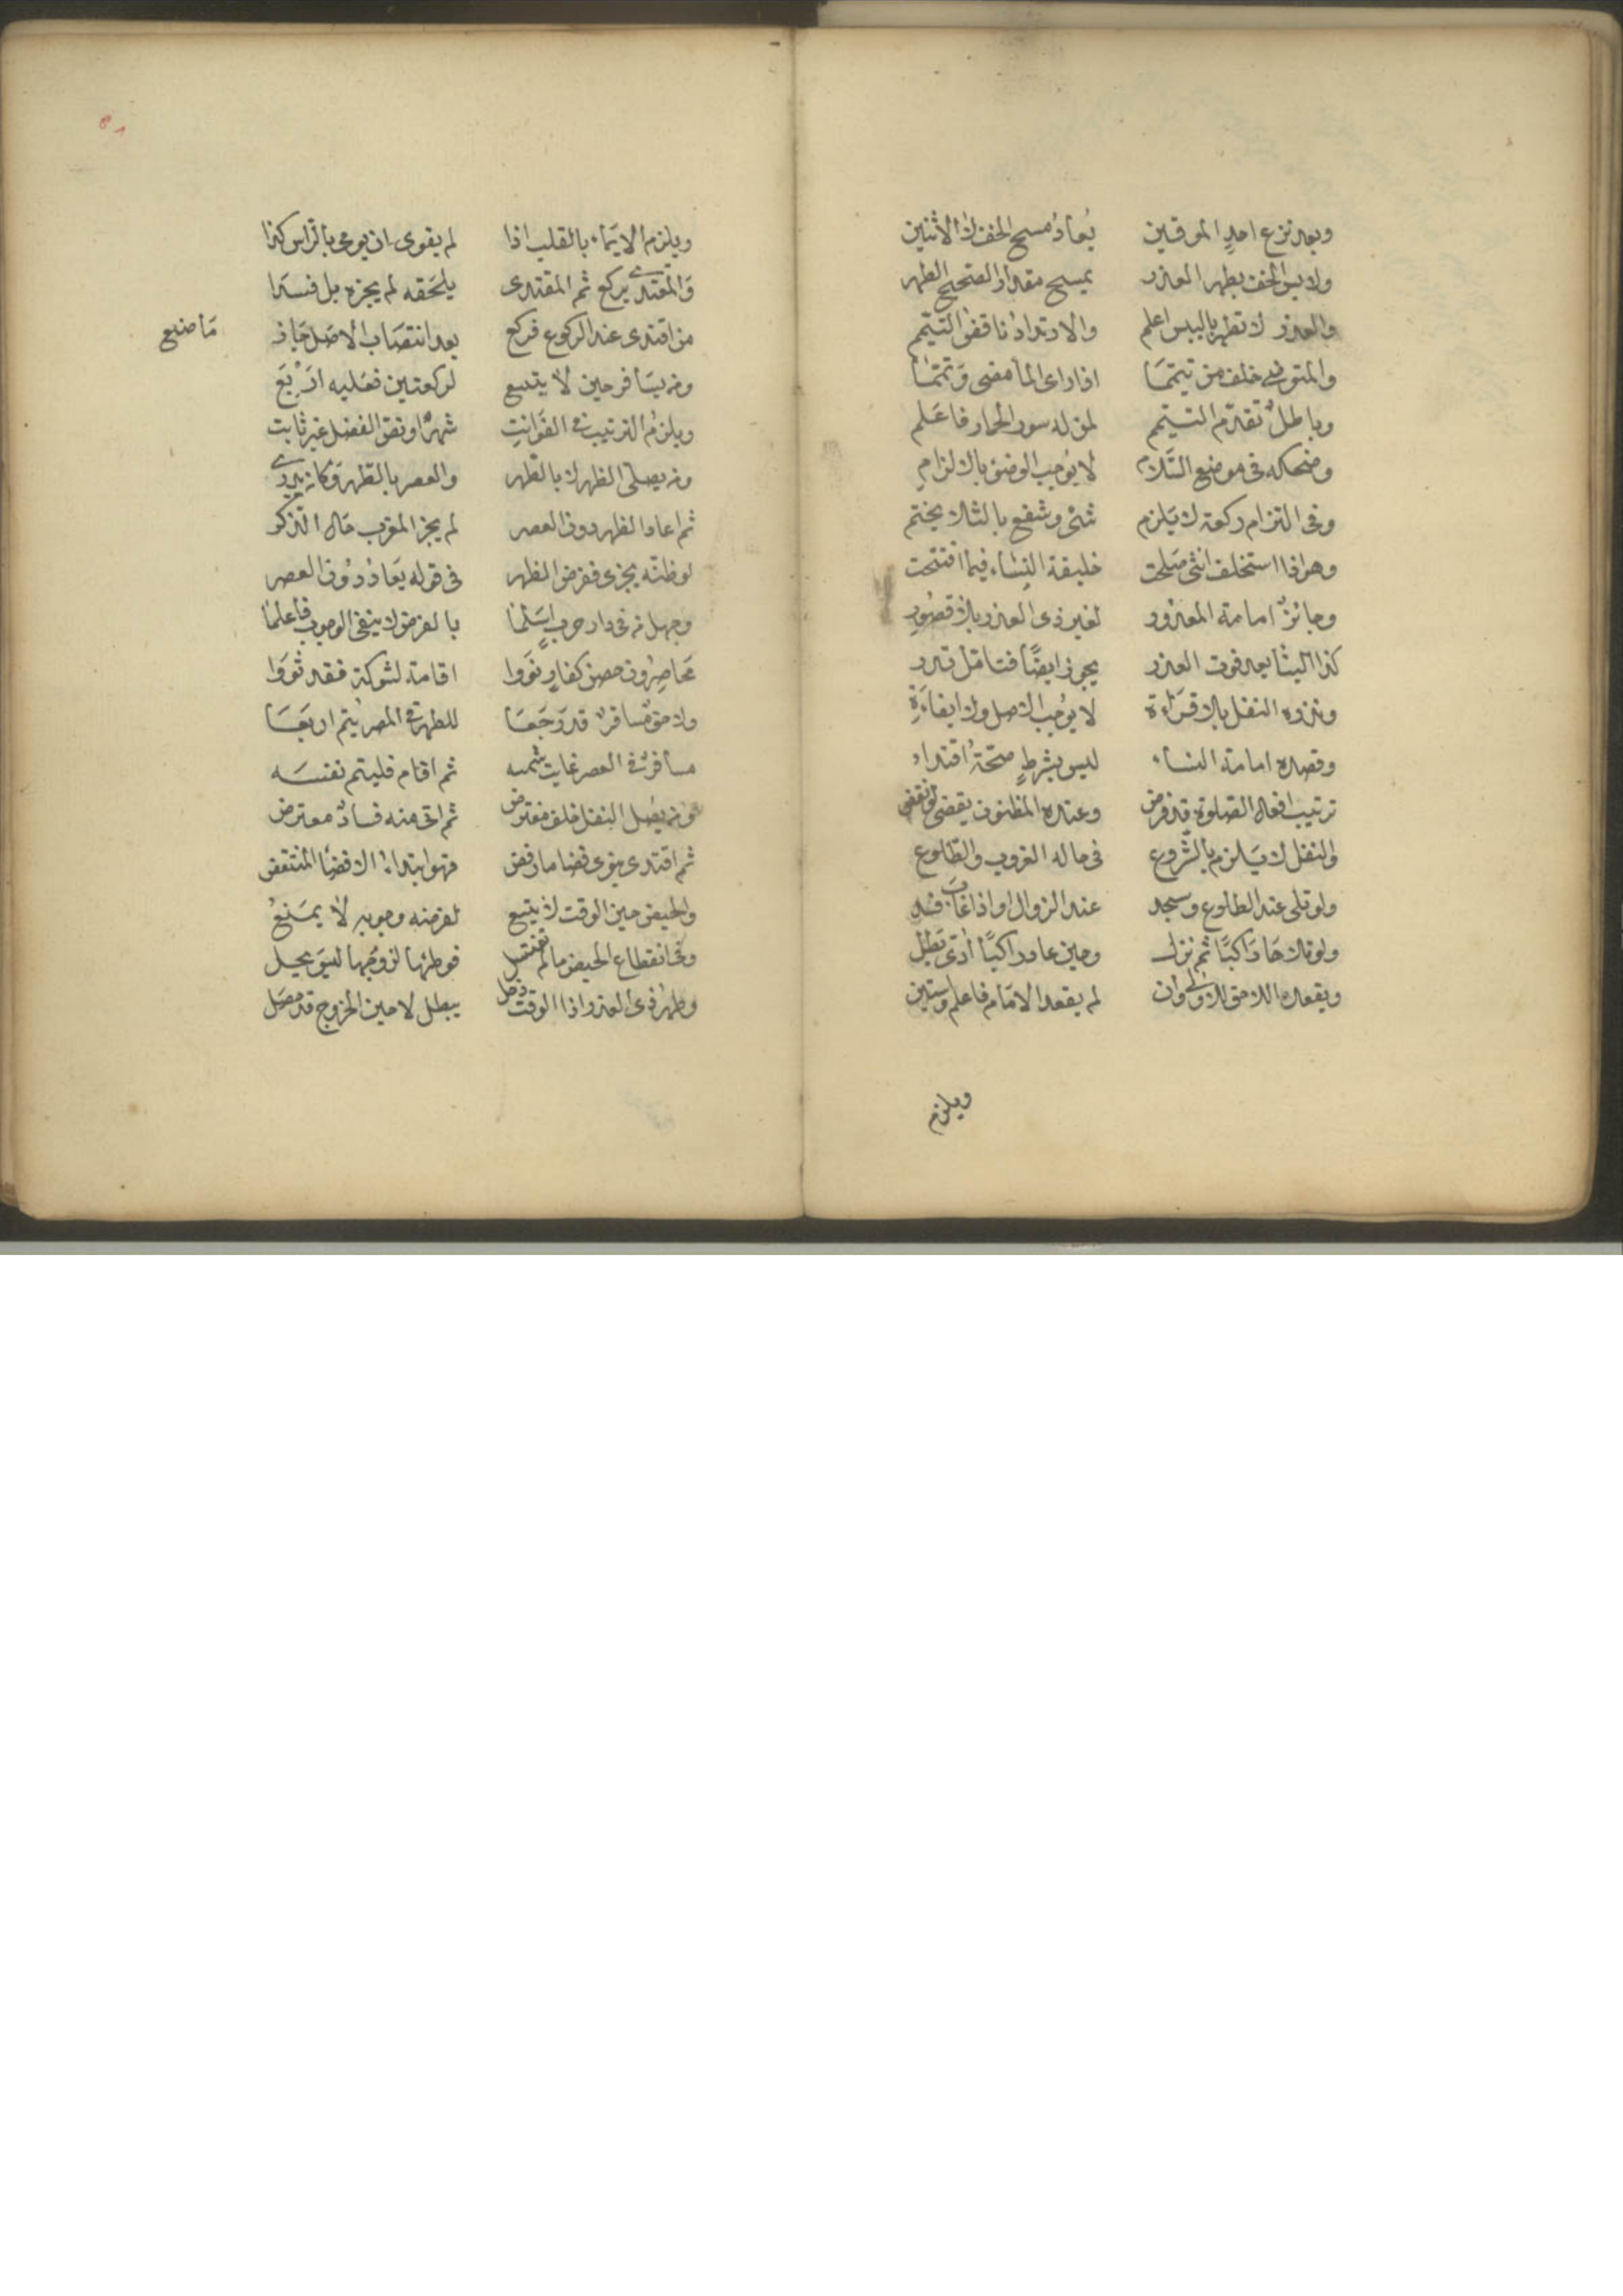 وبعد نزع احد الموقين يعاد مسح الخف لا الاثنين
ولابس الخف بطهر العذر يمسح مقدار الصحيح الطهر
والعذر لا تطهر باللبس اعلم والارتداد ناقض التيمم
والمتوضى خلف من تيمما اذا راى الما مضى وتمما
وباطل تقدم التيمم لمن له سور الحمار فاعلم
وضحكه فى موضع السلام لا يوجب الوضوء بالالزام
وفى التزام ركعة لا يلزم شئ وشفع بالثلاث يختم
وهو اذا استخلف انثى صلحت خليفة النساء فيما افتتحت
وجائز امامة المعذور لغير ذى العذر بلا قصور
كذا البنا بعد فوت العذر يجوز ايضا فتامل تدر
ونذره النفل بلا قراءة لا يوجب الاصل ولا ايفاءة
وقصده امامة النساء ليس بشرط صحة اقتداء
ترتيب افعال الصلوة قد فرض وعنده المظنون يقضى لو نقض
والنفل لا يلزم بالشروع فى حالة الغروب والطلوع
ولو تلى عند الطلوع وسجد عند الزوال او اذا غاب فسد
ولو تلاها راكبا ثم نزل وحين عاد راكبا ادى بطل
ويقعده اللاحق للاولى وان لم يقعد الامام فاعلم واستبن
ويلزم
ويلزم الايماء بالقلب اذا لم يقوى ان يومى بالراس كذا
والمقتدى يركع ثم المقتدى يلحقه لم يجزه بل فسدا
من اقتدى عند الركوع فركع بعد انتصاب الاصل جاز
ما صنع
ومن يسافر حين لا يتسع لركعتين فعليه اربع
ويلزم الترتيب فى الفوائت شهرا ونقض الفضل غير ثابت
ومن يصلى الظهر لا بالطهر والعصر بالطهر وكان يدرى
ثم اعاد الظهر دون العصر لم يجز المغرب حال الذكر
لو ظنه يجزى ففرض الظهر فى قوله يعاد دون العصر
وجهل من فى دار حرب اسلما بالفرض لا ينفى الوجوب فاعلما
محاصرون حصن كفار نووا اقامة لشوكة فقد ثووا
ولاحق مسافر قد رجعا للطهر فى المصر يتم اربعا
مسافر فى العصر غابت شمسه ثم اقام فليتم نفسه
ومن يصل النفل خلف مفترض ثم اتى منه فساد معترض
ثم اقتدى ينوى قضا ما رفض فهو ابتداء لا قضا المنتقض
والحيض حين الوقت لا يتسع لفرضه وجوبه لا يمنع
وفى انقطاع الحيض ما لم تغتسل فوطئها لزوجها ليس يحل
وطهر ذى العذر اذا الوقت دخل يبطل لا حين الخروج قد حصل